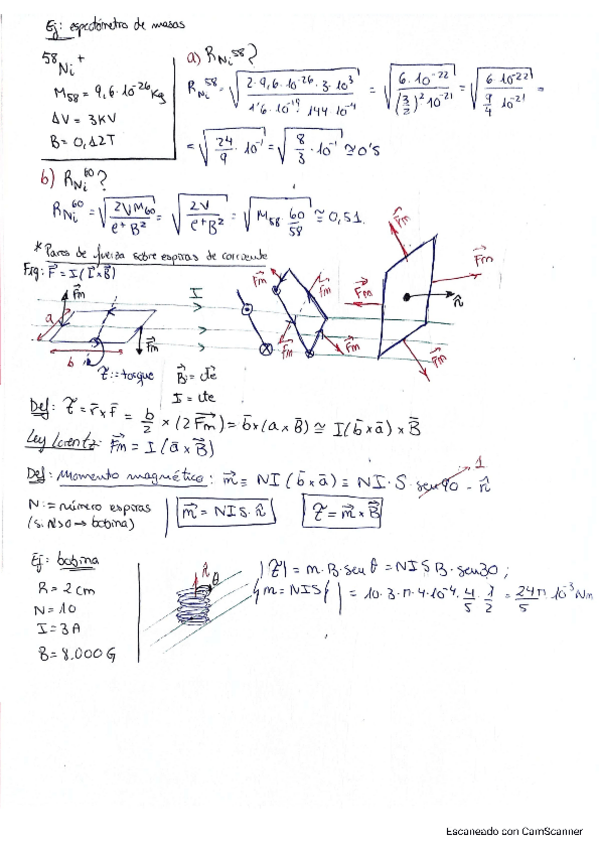 Ej: espectómetro de masas
⁵⁸Ni⁺
M₅₈ = 9,6·10⁻²⁶ kg
ΔV = 3KV
B = 0,12T
a) R_Ni⁵⁸?
R_Ni⁵⁸ = √(2·9,6·10⁻²⁶·3·10³ / 1'6·10⁻¹⁹·144·10⁻⁴) = √(6·10⁻²² / (3/2)²·10⁻²¹) = √(6·10⁻²² / 9/4·10⁻²¹) =
= √(24/9·10⁻¹) = √(8/3·10⁻¹) ≅ 0'5
b) R_Ni⁶⁰?
R_Ni⁶⁰ = √(2VM₆₀ / e⁺B²) = √(2V / e⁺B²) = √(M₅₈·60/58) ≅ 0,51.
* Pares de fuerza sobre espiras de corriente
Frg: F⃗ = I(l⃗×B⃗)
F⃗m
a
b
F⃗m
I
τ := torque
B⃗ = cte
I = cte
F⃗m
F⃗m
F⃗m
F⃗m
F⃗m
F⃗m
F⃗m
F⃗m
n̂
Def: τ = r̄×F̄ = b/2 × (2F⃗m) = b̄×(a×B̄) ≅ I(b̄×ā)×B⃗
Ley Lorentz: F⃗m = I(ā×B⃗)
Def: Momento magnético: m⃗ ≡ NI(b̄×ā) ≡ NI·S·sen90 · n̂
1
N := número espiras
(si N>0 → bobina)
m⃗ = NIS·n̂
τ = m⃗×B⃗
Ej: bobina
R = 2cm
N = 10
I = 3A
B = 8.000G
n̂
θ
|τ| = m·B·senθ = NISB·sen30;
{m = NIS} = 10·3·π·4·10⁻⁴·4/5·1/2 = 24π/5·10⁻³ Nm
Escaneado con CamScanner